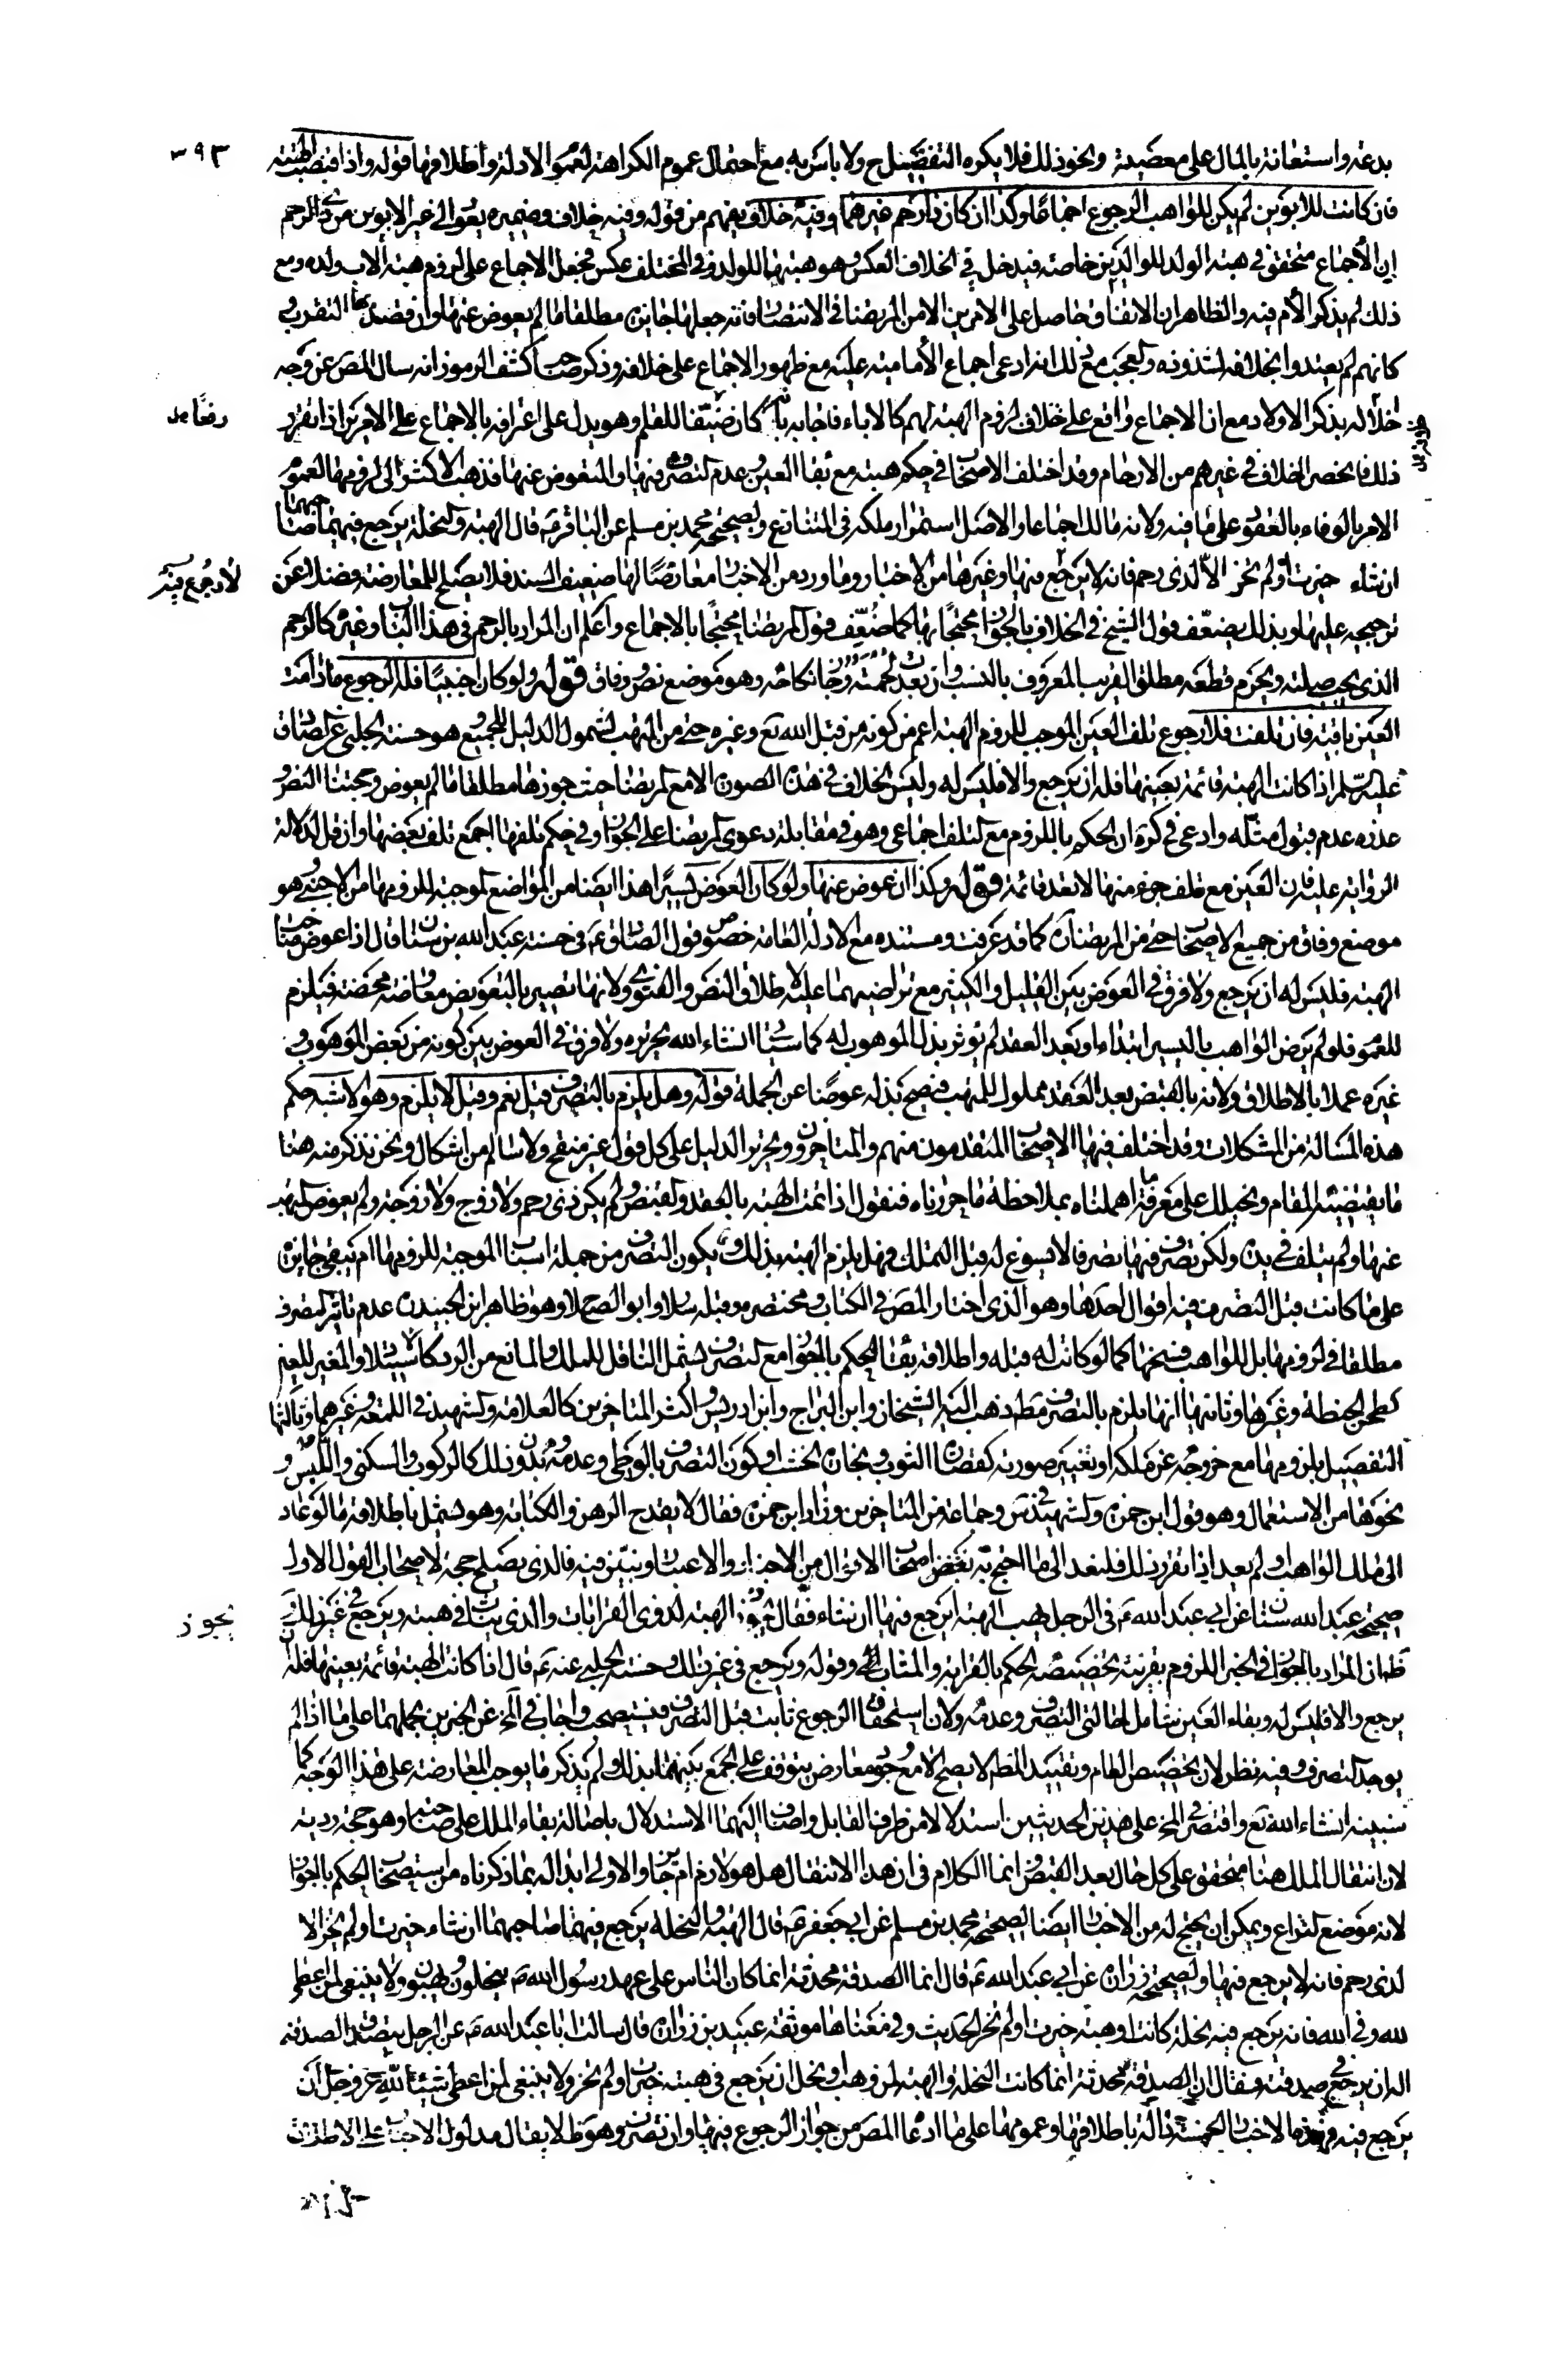 ٣٩٣
بدعته واستعانته بالمال على معصية ونحو ذلك فلا يكره التفضيل ح ولا بأس به مع احتمال عموم الكراهة لعموم الادلة واطلاقها قوله واذا قبضت الهبة
فان كانت للابوين لم يكن للواهب الرجوع اجماعا وكذا ان كان ذا رحم غيرهما وفيه خلاف يفهم من قوله وفيه خلاف وضميره يعود الى غير الابوين من ذي الرحم
ان الاجماع متحقق في هبة الولد للوالدين خاصة فيدخل في الخلاف العكس وهو هبتهما للولد وفي المختلف عكس فجعل الاجماع على لزوم هبة الاب ولده ومع
ذلك لم يذكر الأم فيه والظاهر ان الاتفاق حاصل على الامرين الا من المرتضى في الانتصار فانه جعلها جايزة مطلقا ما لم يعوض عنها وان قصد بها التقرب و
كانهم لم يعتدوا بخلافه لشذوذه والعجب مع ذلك انه ادعى اجماع الأمامية عليه مع ظهور الاجماع على خلافه وذكر صاحب كشف الرموز انه سال المص عن وجه
اخلاله بذكر الاولاد مع ان الاجماع واقع على خلاف لزوم الهبة لهم كالاباء فاجابه بانه كان ضيقا للقلم وهو يدل على اعترافه بالاجماع على الامرين اذا تقرر
ذلك فانحصر الخلاف في غيرهم من الارحام وقد اختلف الاصحاب في حكم هبته مع بقاء العين وعدم التصرف فيها والتعوض عنها فذهب الاكثر الى لزومها لعموم
الامر بالوفاء بالعقود على ما فيه ولانه مالك اجماعا والاصل استمرار ملكه في المتنازع ولصحيحة محمد بن مسلم عن الباقر ع قال الهبة والنحلة يرجع فيهما صاحبهما
ان شاء حيزت أو لم تحز الا لذي رحم فانه لا يرجع فيها وغيرها من الاخبار وما ورد من الاخبار معارضا لها ضعيف السند فلا يصلح للمعارضة فضلا عن
ترجيحه عليها وبذلك يضعف قول الشيخ في الخلاف بالجواز محتجا بها كما ضعف قول المرتضى محتجا بالاجماع واعلم ان المراد بالرحم في هذا الباب وغيره كالرحم
الذي يجب صلته ويحرم قطعه مطلق القريب المعروف بالنسب وان بعدت لحمته وجاز نكاحه وهو موضع نص ووفاق قوله ولو كان اجنبيا فله الرجوع ما دامت
العين باقية فان تلفت فلا رجوع تلف العين الموجب للزوم الهبة اعم من كونه من قبل الله تع وغيره حتى من المتهب لشمول الدليل للجميع وهو حسنة الحلبي عن الصادق
عليه السلم اذا كانت الهبة قائمة بعينها فله ان يرجع والا فليس له وليس الخلاف في هذه الصورة الا مع المرتضى حيث جوزها مطلقا ما لم يعوض وحجتنا النص و
عذره عدم قبول مثله وادعى في كره ان الحكم باللزوم مع التلف اجماعي وهو في مقابلة دعوى المرتضى على الجواز وفي حكم تلفها اجمع تلف بعضها وان قل لدلالة
الرواية عليه فان العين مع تلف جزء منها لا تعد قائمة قوله وكذا ان عوض عنها ولو كان العوض يسيرا هذا ايضا من المواضع الموجبة للزومها من الاجنبي وهو
موضع وفاق من جميع الاصحاب حتى من المرتضى كما قد عرفت ومستنده مع الادلة العامة خصوص قول الصادق ع في حسنة عبد الله بن سنان قال اذا عوض صاحب
الهبة فليس له ان يرجع ولا فرق في العوض بين القليل والكثير مع تراضيهما عليه لاطلاق النص والفتوى ولانها تصير بالتعويض معاوضة محضة فيلزم
للعموم فلو لم يرض الواهب باليسير ابتداء او بعد العقد لم يؤثر بذل الموهوب له كما سيأتي انشاء الله تحريره ولا فرق في العوض بين كونه من بعض الموهوب و
غيره عملا بالاطلاق ولانه بالقبض بعد العقد مملوك للمتهب فيصح بذله عوضا عن الجملة قوله وهل يلزم بالتصرف قيل نعم وقيل لا يلزم وهو الاشبه حكم
هذه المسالة من المشكلات وقد اختلف فيها الاصحاب المتقدمون منهم والمتاخرون وتحرير الدليل على كل قول غير منقح ولا سالم من اشكال ونحن نذكر منه هنا
ما يقتضيه المقام ونحيلك على معرفة ما اهملناه بملاحظة ما حررناه فنقول اذا تمت الهبة بالعقد والقبض ولم يكن ذي رحم ولا زوج ولا زوجة ولم يعوض المتهب
عنها ولم يتلف في يده ولكن تصرف فيها تصرفا لا يسوغ له قبل التملك فهل يلزم الهبة بذلك ويكون التصرف من جملة اسبابها الموجبة للزومها ام تبقى جايزة
على ما كانت قبل التصرف فيه اقوال احدها وهو الذي اختار المص في الكتاب ومختصره وقبله سلار وابو الصلاح وهو ظاهر ابن الجنيد عدم تاثير التصرف
مطلقا في لزومها بل للواهب فسخها كما لو كانت له قبله واطلاقه بقاء الحكم بالجواز مع التصرف يشمل الناقل للملك والمانع من الرد كالاستيلاد والمغير للعين
كطحن الحنطة وغيرها وثانيها انها يلزم بالتصرف مط ذهب اليه الشيخان وابن البراج وابن ادريس واكثر المتاخرين كالعلامة والشهيد في اللمعة وغيرهما وثالثها
التفصيل بلزومها مع خروجه عن ملكه او تغيير صورته كقصارة الثوب ونجارة الخشب او كون التصرف بالوطي وعدمه بدون ذلك كالركوب والسكنى واللبس و
نحوها من الاستعمال وهو قول ابن حمزة والشهيد في س وجماعة من المتاخرين وزاد ابن حمزة فقال لا يقدح الرهن والكتابة وهو يشمل باطلاقه ما لو عاد
الى ملك الواهب او لم يعد اذا تقرر ذلك فلنعد الى ما احتج به بعض اصحاب الاقوال من الاخبار والاعتبار ونبين فيه فالذي يصلح حجة لاصحاب القول الاول
صحيحة عبد الله بن سنان عن ابي عبد الله ع في الرجل يهب الهبة ايرجع فيها ان شاء فقال تجوز الهبة لذوي القرابات والذي يثاب في هبته ويرجع في غير ذلك و
ظ ان المراد بالجواز في الخبر اللزوم بقرينة تخصيصه الحكم بالقرابة والمثاب وقوله ويرجع في غير ذلك وحسنة الحلبي عنه ع قال اذا كانت الهبة قائمة بعينها فله ان
يرجع والا فليس له وبقاء العين شامل لحالتي التصرف وعدمه ولان استحقاق الرجوع ثابت قبل التصرف فيستصحب واجاب في لف عن الخبرين بحملهما على ما اذا لم
يوجد التصرف وفيه نظر لان تخصيص العام وتقييد المط لا يصح الا مع وجود معارض يتوقف على الجمع بينهما بذلك ولم يذكر ما يوجب المعارضة على هذا الوجه كما
سنبينه انشاء الله تع واقتصر في لف على هذين الحديثين استدلالا من طرف القابل واضاف اليهما الاستدلال باصالة بقاء الملك على صاحبها وهو حجة ردية
لان انتقال الملك هنا متحقق على كل حال بعد القبض وانما الكلام في ان هذا الانتقال هل هو لازم ام جايز والاولى ابداله بما ذكرناه من استصحاب الحكم بالجواز
لانه موضع النزاع ويمكن ان يحتج له من الاخبار ايضا بصحيحة محمد بن مسلم عن ابي جعفر ع قال الهبة والنحلة يرجع فيهما صاحبهما ان شاء حيزت او لم تحز الا
لذي رحم فانه لا يرجع فيها ولصحيحة زرارة عن ابي عبد الله ع قال انما الصدقة محدثة انما كان الناس على عهد رسول الله ص ينحلون ويهبون ولا ينبغي لمن اعطى
لله وفي الله فانه يرجع فيه نحلة كانت او هبة حيزت او لم تحز الحديث وفي معناها موثقة عبيد بن زرارة قال سالت ابا عبد الله ع عن الرجل يتصدق الصدقة
اله ان يرجع في صدقته فقال ان الصدقة محدثة انما كانت النحلة والهبة لمن وهب او نحل ان يرجع في هبته حيز او لم تحز ولا ينبغي لمن اعطى شيئا لله عز وجل ان
يرجع فيه فهذه الاخبار الخمسة دالة باطلاقها وعمومها على ما ادعاه المص من جواز الرجوع فيها وان تصرف وهو ظ لا يقال مدلول الاخبار على الاطلاق
يجوز